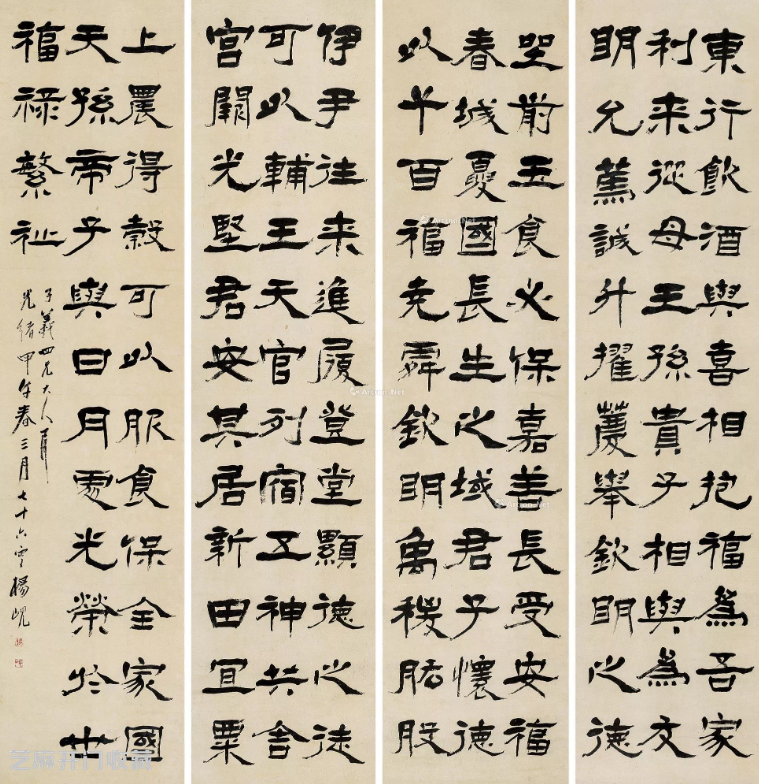 東行飲酒與喜相抱福為吾家
利来從母王孫貴子相與為文
明允篤誠升擢薦舉欽明之德
坐前玉食必保嘉善長受安福
春城夏國長生之域君子懷德
以千百福堯舜欽明禹稷肱股
伊尹往来進履登堂顯德之徒
可以輔王天官列宿五神共舍
宮闕光堅君安其居新田宜粟
上農得穀可以服食保全家國
天孫帝子與日月處光榮於世
福祿繁祉
子義四兄大人屬
光緒甲午春三月七十六叟楊峴
芝麻开门收藏